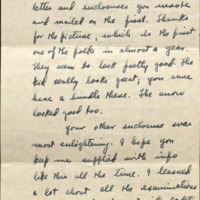 letter and enclosures you wrote
and mailed on the first. Thanks
for the picture, which is the first
one of the folks in almost a year.
They seem to look pretty good. The
kid really looks great, you sure
have a bundle there. The snow
looked good too.
Your other enclosure was
most enlightening. I hope you
keep me supplied with info
like this all the time. I learned
a lot about all the examinations